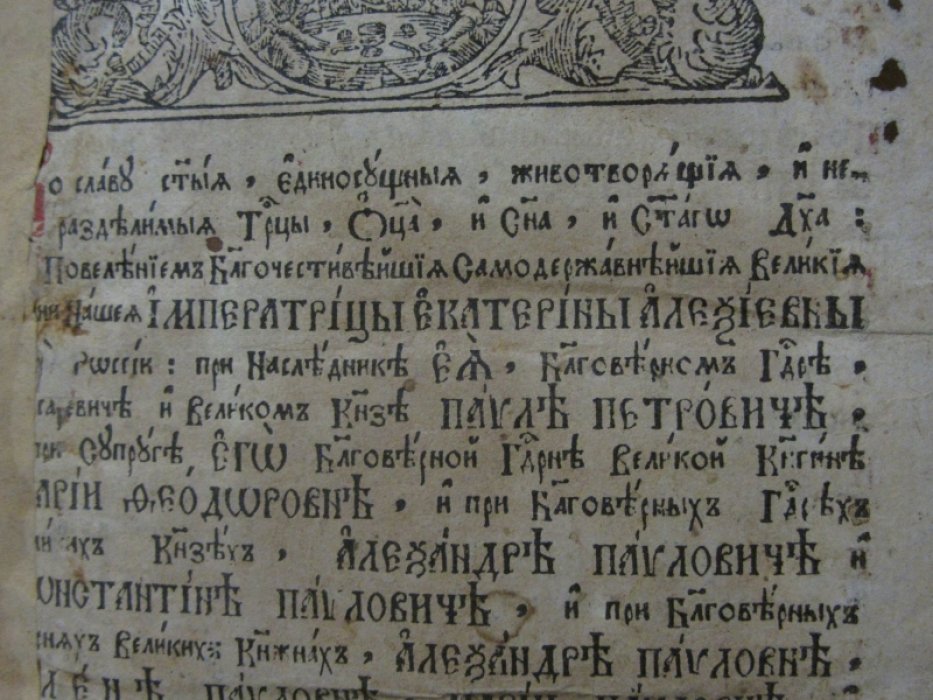 о сла́ву ст҃ы́ѧ, є҆диносꙋ́щныѧ, животворѧ́щїѧ, и҆ не-
раздѣли́мыѧ Трⷪ҇цы, Ѻ҆ц҃а̀, и҆ Сн҃а, и҆ Ст҃а́гѡ Дх҃а:
Повелѣ́нїемъ Бл҃гочести́вѣйшїѧ Самодержа́внѣйшїѧ Вели́кїѧ
На́шеѧ І҆МПЕРАТРІ́ЦЫ Є҆КАТЕРІ́НЫ А҆ЛЕѮІ́ЕВНЫ
при Наслѣ́дникѣ Є҆Ѧ̀, Бл҃говѣ́рномъ Гдⷭ҇рѣ,
и҆ Вели́комъ Кн҃зѣ ПА́ѴЛѢ ПЕТРО́ВИЧѢ,
Сꙋпрꙋ́гѣ Є҆ГѠ̀ Бл҃говѣ́рной Гдⷭ҇рнѣ Вели́кой Кн҃ги́нѣ
АРІ́И ѲЕО́ДѠРОВНѢ, и҆ при Бл҃говѣ́рныхъ Гдⷭ҇рѣхъ
Кн҃зѣ́хъ, А҆ЛЕѮА́НДРѢ ПА́ѴЛОВИЧѢ и҆
ОНСТАНТІ́НѢ ПА́ѴЛОВИЧѢ, и҆ при Бл҃говѣ́рныхъ
Вели́кихъ Кн҃жна́хъ, А҆ЛЕѮА́НДРѢ ПА́ѴЛОВНѢ,
ЛЕ́НѢ ПА́ѴЛОВНѢ, МАРІ́И ПА́ѴЛОВНѢ